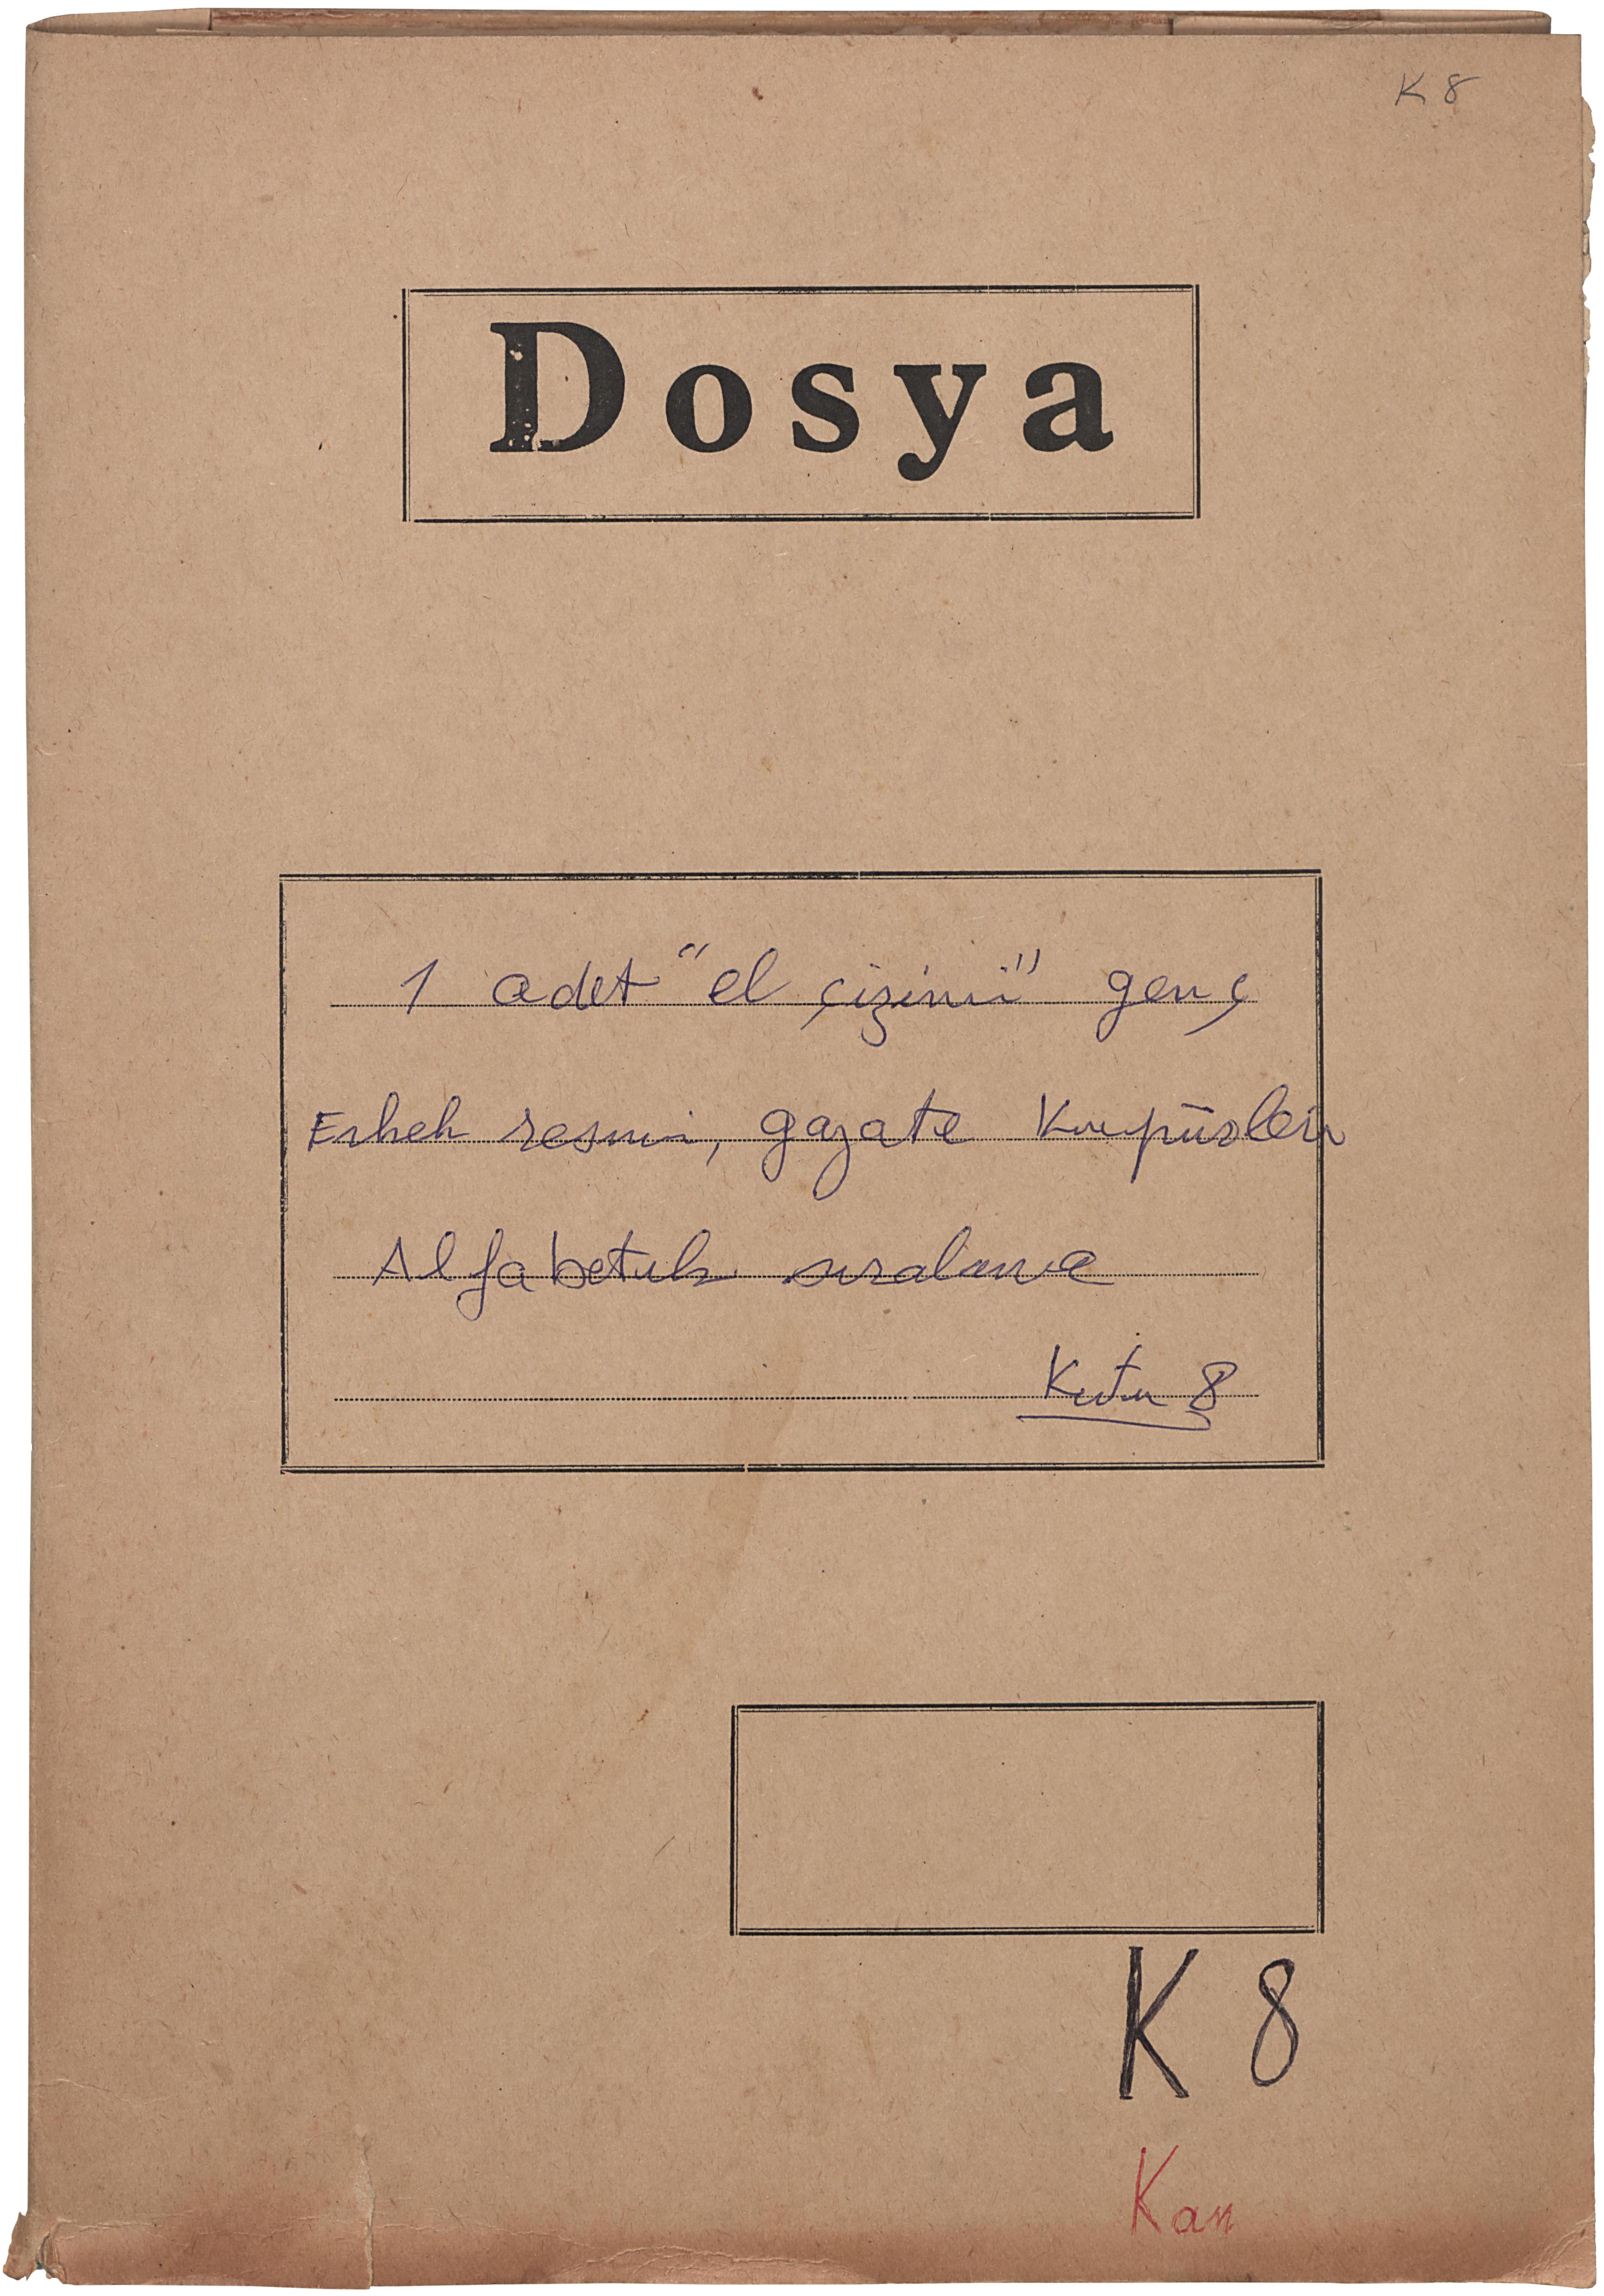 K 8
Dosya
1 adet "el çizimi" genç
Erkek resmi, gazate Kupürleri
Alfabetik sıralama
Kutu 8
K 8
Kan